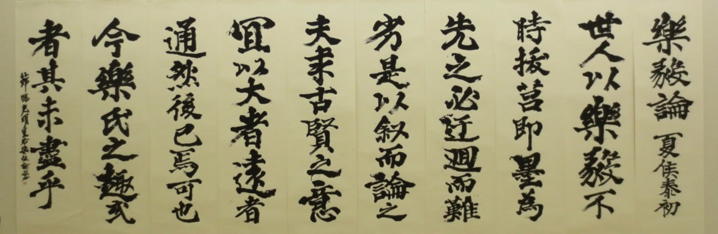 樂毅論 夏侯泰初
世人以樂毅不
時拔莒即墨為
先之必迂迴而難
劣是以叙而論之
夫求古賢之意
宜以大者遠者
通然後已焉可也
今樂氏之趣或
者其未盡乎